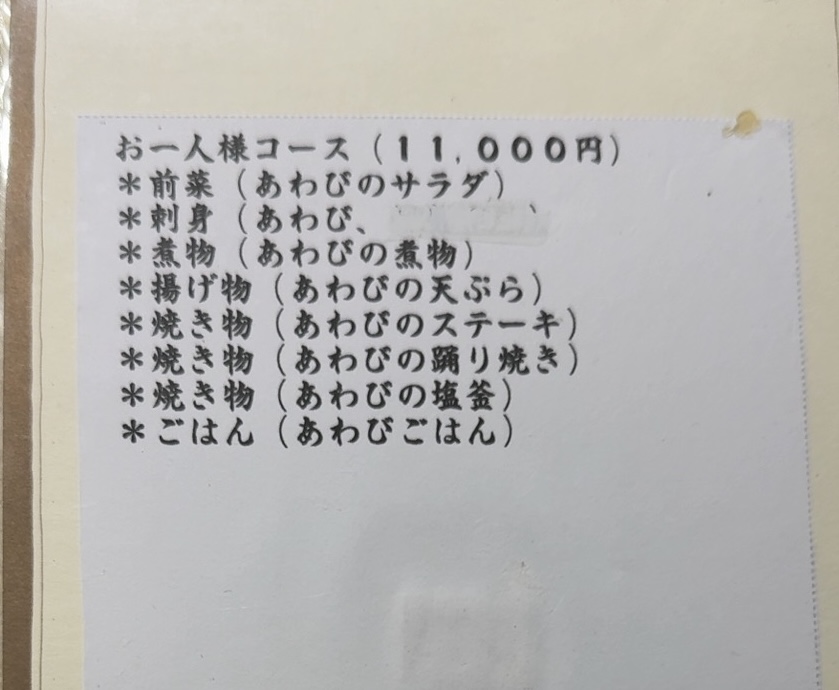 お一人様コース（１１,０００円）
＊前菜（あわびのサラダ）
＊刺身（あわび、
＊煮物（あわびの煮物）
＊揚げ物（あわびの天ぷら）
＊焼き物（あわびのステーキ）
＊焼き物（あわびの踊り焼き）
＊焼き物（あわびの塩釜）
＊ごはん（あわびごはん）